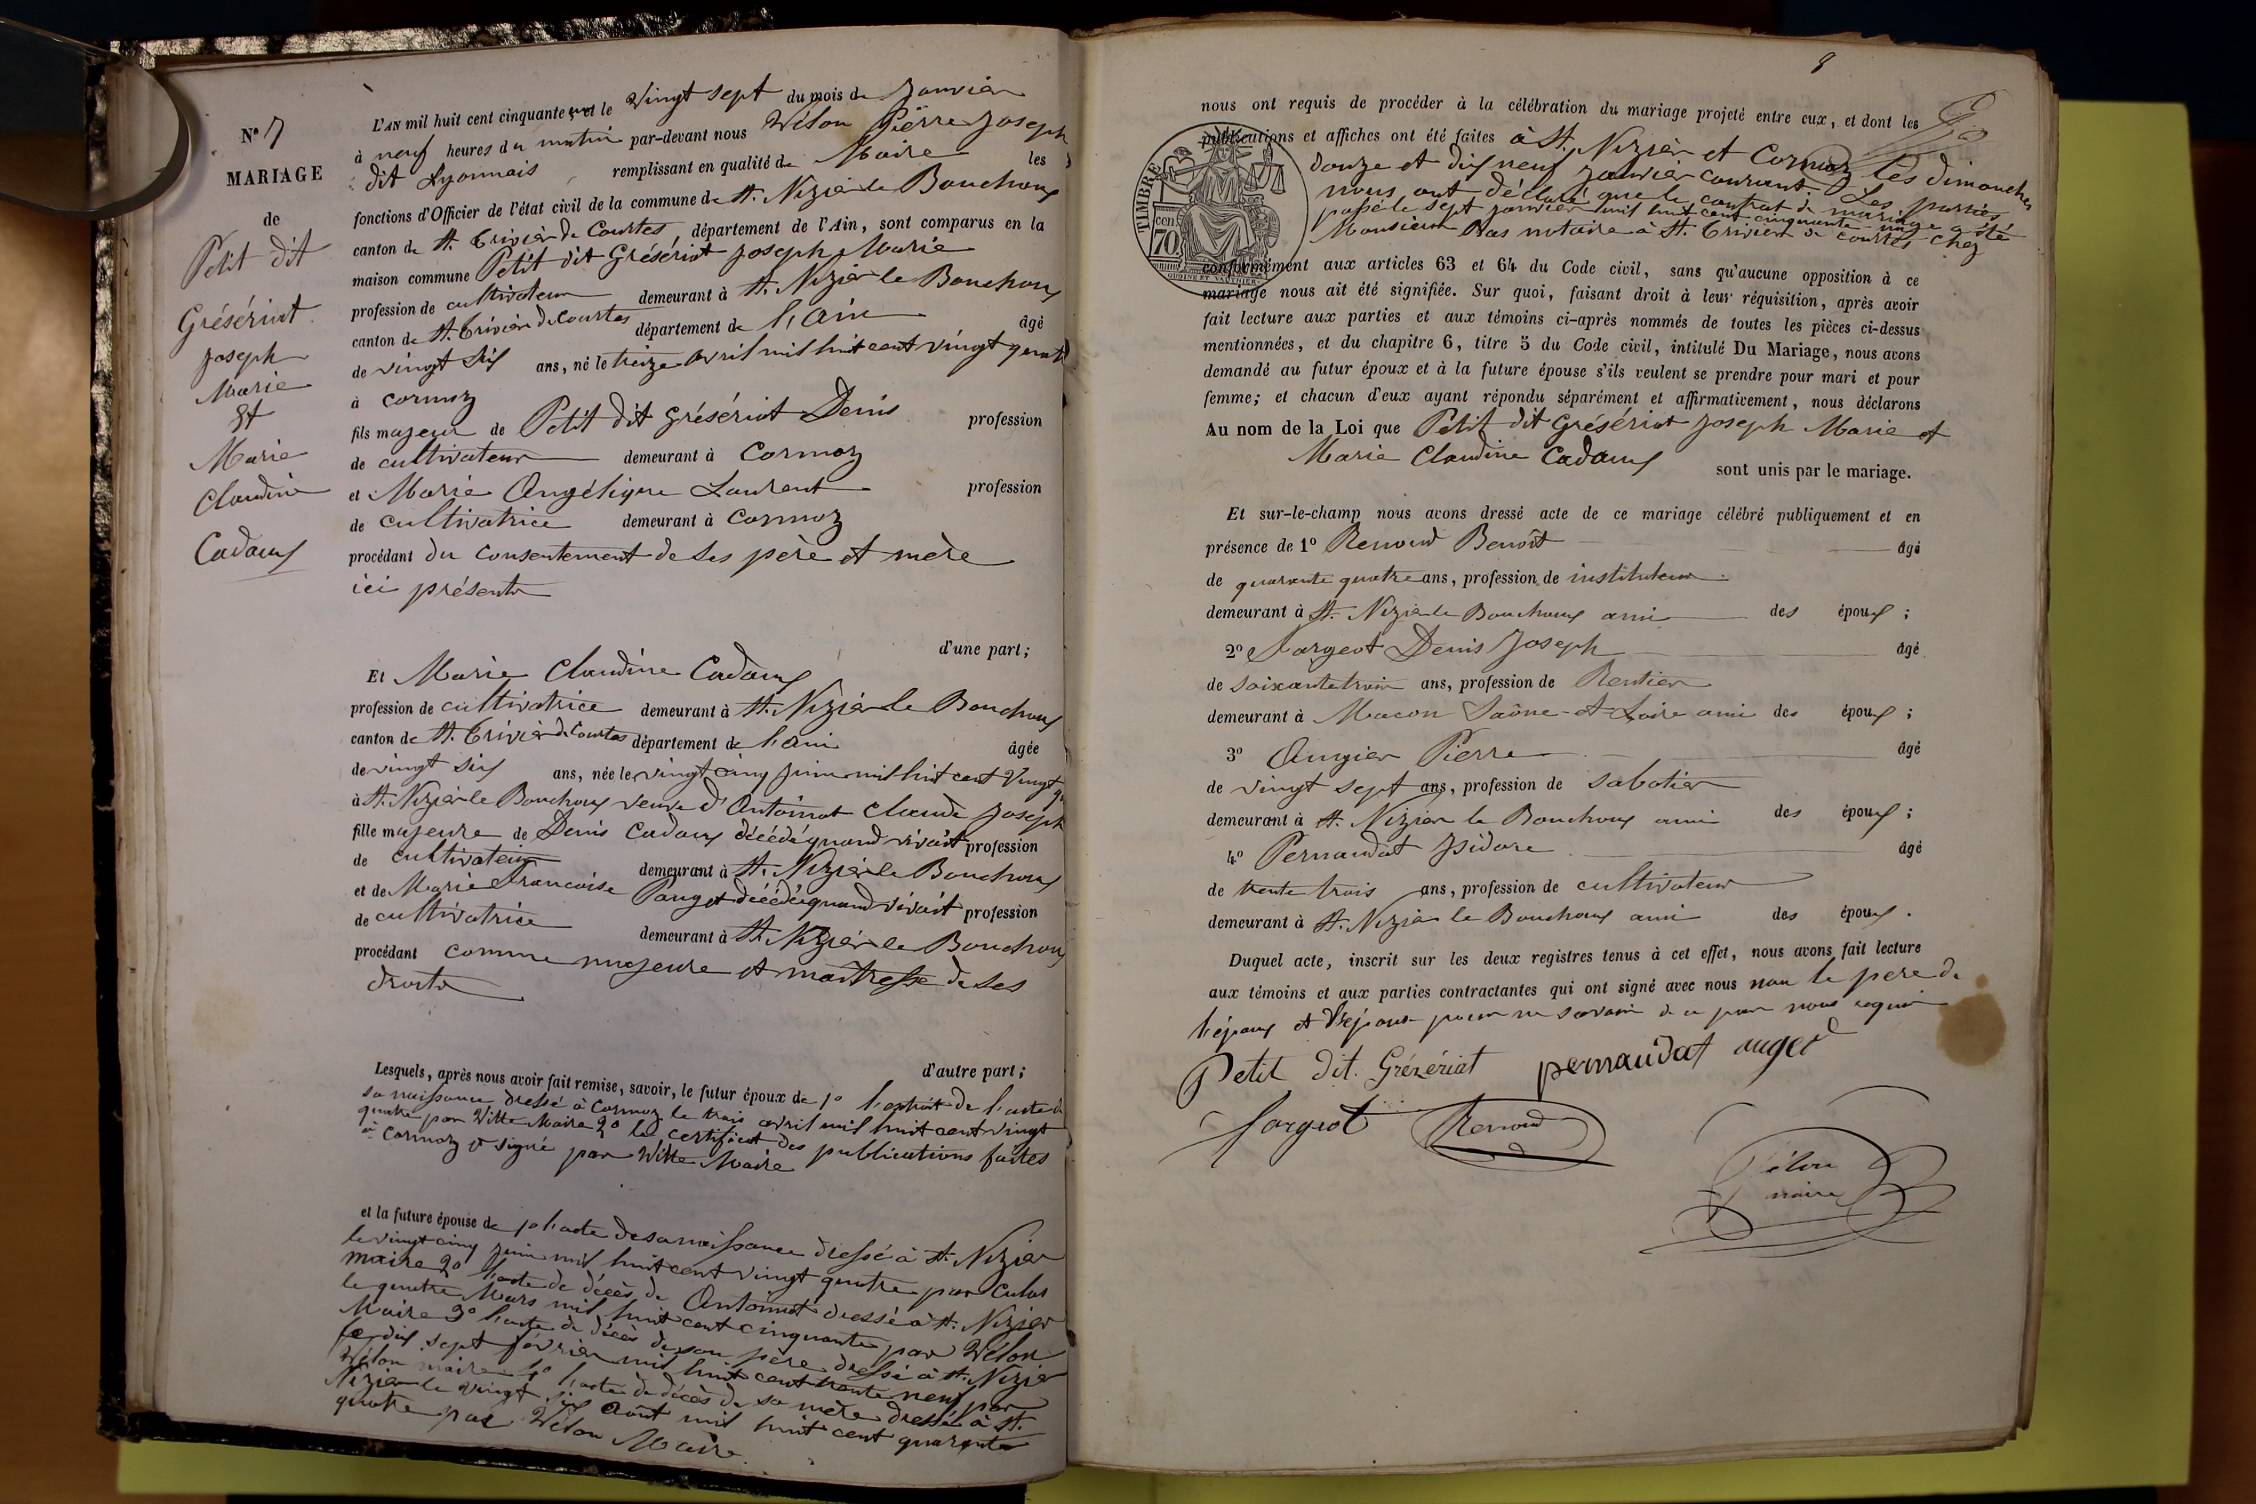 N° 7
MARIAGE
de
Petit dit
Grésériat
Joseph
Marie
Et
Marie
Claudine
Cadoux
L'AN mil huit cent cinquante le vingt sept du mois de Janvier
à neuf heures du matin par-devant nous Vélon Pierre Joseph
dit Lyonnais remplissant en qualité de Maire les
fonctions d'Officier de l'état civil de la commune de St. Nizier le Bouchoux
canton de St. Trivier de Courtes, département de l'Ain, sont comparus en la
maison commune Petit dit Grésériat Joseph Marie
profession de cultivateur demeurant à St. Nizier le Bouchoux
canton de St. Trivier de Courtes département de l'Ain âgé
de vingt six ans, né le treize avril mil huit cent vingt quatre
à Cormoz
fils majeur de Petit dit Grésériat Denis profession
de cultivateur demeurant à Cormoz
et Marie Angélique Laurent profession
de cultivatrice demeurant à Cormoz
procédant du consentement de ses père et mère
ici présents
d'une part;
Et Marie Claudine Cadoux
profession de cultivatrice demeurant à St. Nizier le Bouchoux
canton de St. Trivier de Courtes département de l'Ain âgée
de vingt six ans, née le vingt cinq juin mil huit cent vingt
à St. Nizier le Bouchoux veuve d'Antoinat Claude Joseph
fille majeure de Denis Cadoux décédé quand vivait profession
de cultivateur demeurant à St. Nizier le Bouchoux
et de Marie Francoise Pauget décédée quand vivait profession
de cultivatrice demeurant à St. Nizier le Bouchoux
procédant comme majeure et maîtresse de ses
droits
d'autre part;
Lesquels, après nous avoir fait remise, savoir, le futur époux de 1° l'extrait de l'acte de
sa naissance dressé à Cormoz le trois avril mil huit cent vingt
quatre par Witte Maire 2° le certificat des publications faites
à Cormoz et signé par Witte Maire
et la future épouse de 1° l'acte de sa naissance dressé à St. Nizier
le vingt cinq juin mil huit cent vingt quatre par
maire 2° l'acte de décès de Antoinat dressé à St. Nizier
le quatre Mars mil huit cent cinquante par Vélon
Maire 3° l'acte de décès de son père dressé à St. Nizier
le dix sept février mil huit cent trente neuf par
Vélon maire 4° l'acte de décès de sa mère dressé à St.
Nizier le vingt six août mil huit cent quarante
quatre par Vélon Maire
8
nous ont requis de procéder à la célébration du mariage projeté entre eux, et dont les
publications et affiches ont été faites à St. Nizier et Cormoz les dimanches
douze et dix neuf janvier courant. Les parties
nous ont déclaré que le contrat de mariage a été
passé le sept janvier mil huit cent cinquante un chez
Monsieur notaire à St. Trivier de Courtes
TIMBRE
70 cen
conformément aux articles 63 et 64 du Code civil, sans qu'aucune opposition à ce
mariage nous ait été signifiée. Sur quoi, faisant droit à leur réquisition, après avoir
fait lecture aux parties et aux témoins ci-après nommés de toutes les pièces ci-dessus
mentionnées, et du chapitre 6, titre 5 du Code civil, intitulé Du Mariage, nous avons
demandé au futur époux et à la future épouse s'ils veulent se prendre pour mari et pour
femme; et chacun d'eux ayant répondu séparément et affirmativement, nous déclarons
Au nom de la Loi que Petit dit Grésériat Joseph Marie et
Marie Claudine Cadoux sont unis par le mariage.
Et sur-le-champ nous avons dressé acte de ce mariage célébré publiquement et en
présence de 1° Renoud Benoît âgé
de quarante quatre ans, profession de instituteur
demeurant à St. Nizier le Bouchoux ami des époux ;
2° Sargeot Denis Joseph âgé
de soixante trois ans, profession de Rentier
demeurant à Macon Saône-et-Loire ami des époux ;
3° Augier Pierre âgé
de vingt sept ans, profession de sabotier
demeurant à St. Nizier le Bouchoux ami des époux ;
4° Pernaudat Isidore âgé
de trente trois ans, profession de cultivateur
demeurant à St. Nizier le Bouchoux ami des époux.
Duquel acte, inscrit sur les deux registres tenus à cet effet, nous avons fait lecture
aux témoins et aux parties contractantes qui ont signé avec nous non le père de
l'époux et l'épouse pour ne savoir de ce par nous requis
Petit dit. Grézériat pernaudat auger
Sargeot Renoud
Vélon
maire